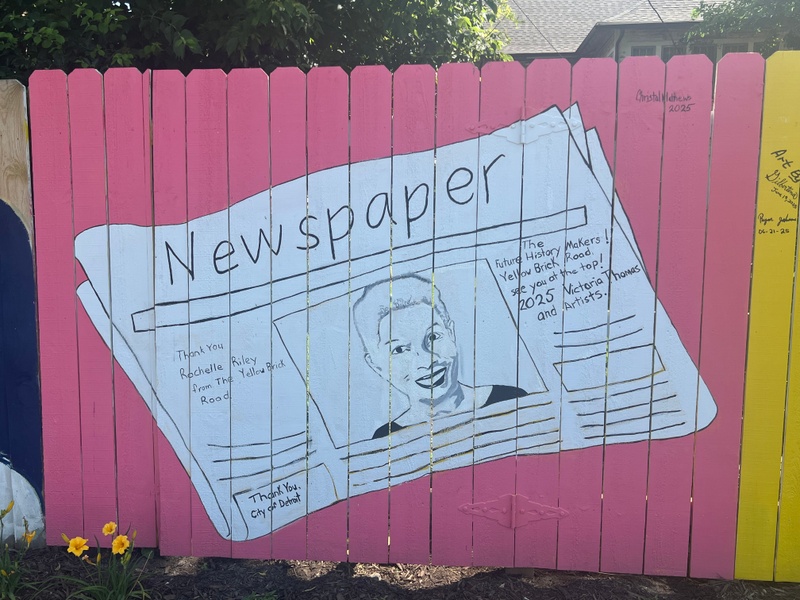 Christal Mathews
2025
Newspaper
The
Future History Makers!
Yellow Brick Road.
see you at the top!
2025 Victoria Thomas
and Artists.
Thank You
Rochelle Riley
from The Yellow Brick
Road.
Thank You,
City of Detroit
Art By
06-21-25